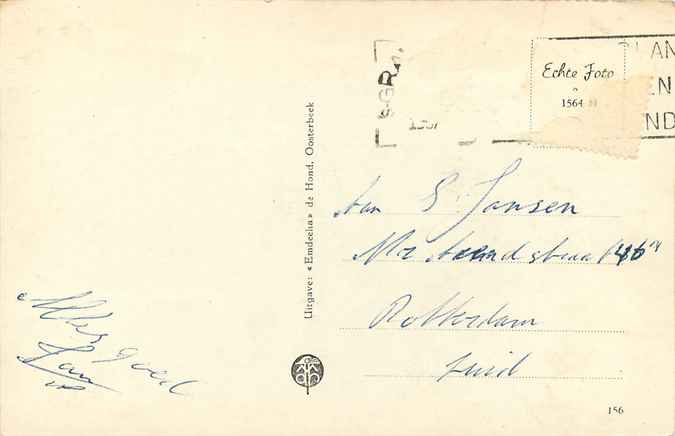 Echte Foto
1564
LAN
EN
ND
GRA
Uitgave: «Emdeeha» de Hond, Oosterbeek
Aan S. Jansen
Rotterdam
Zuid
Alles goed
Jan
156